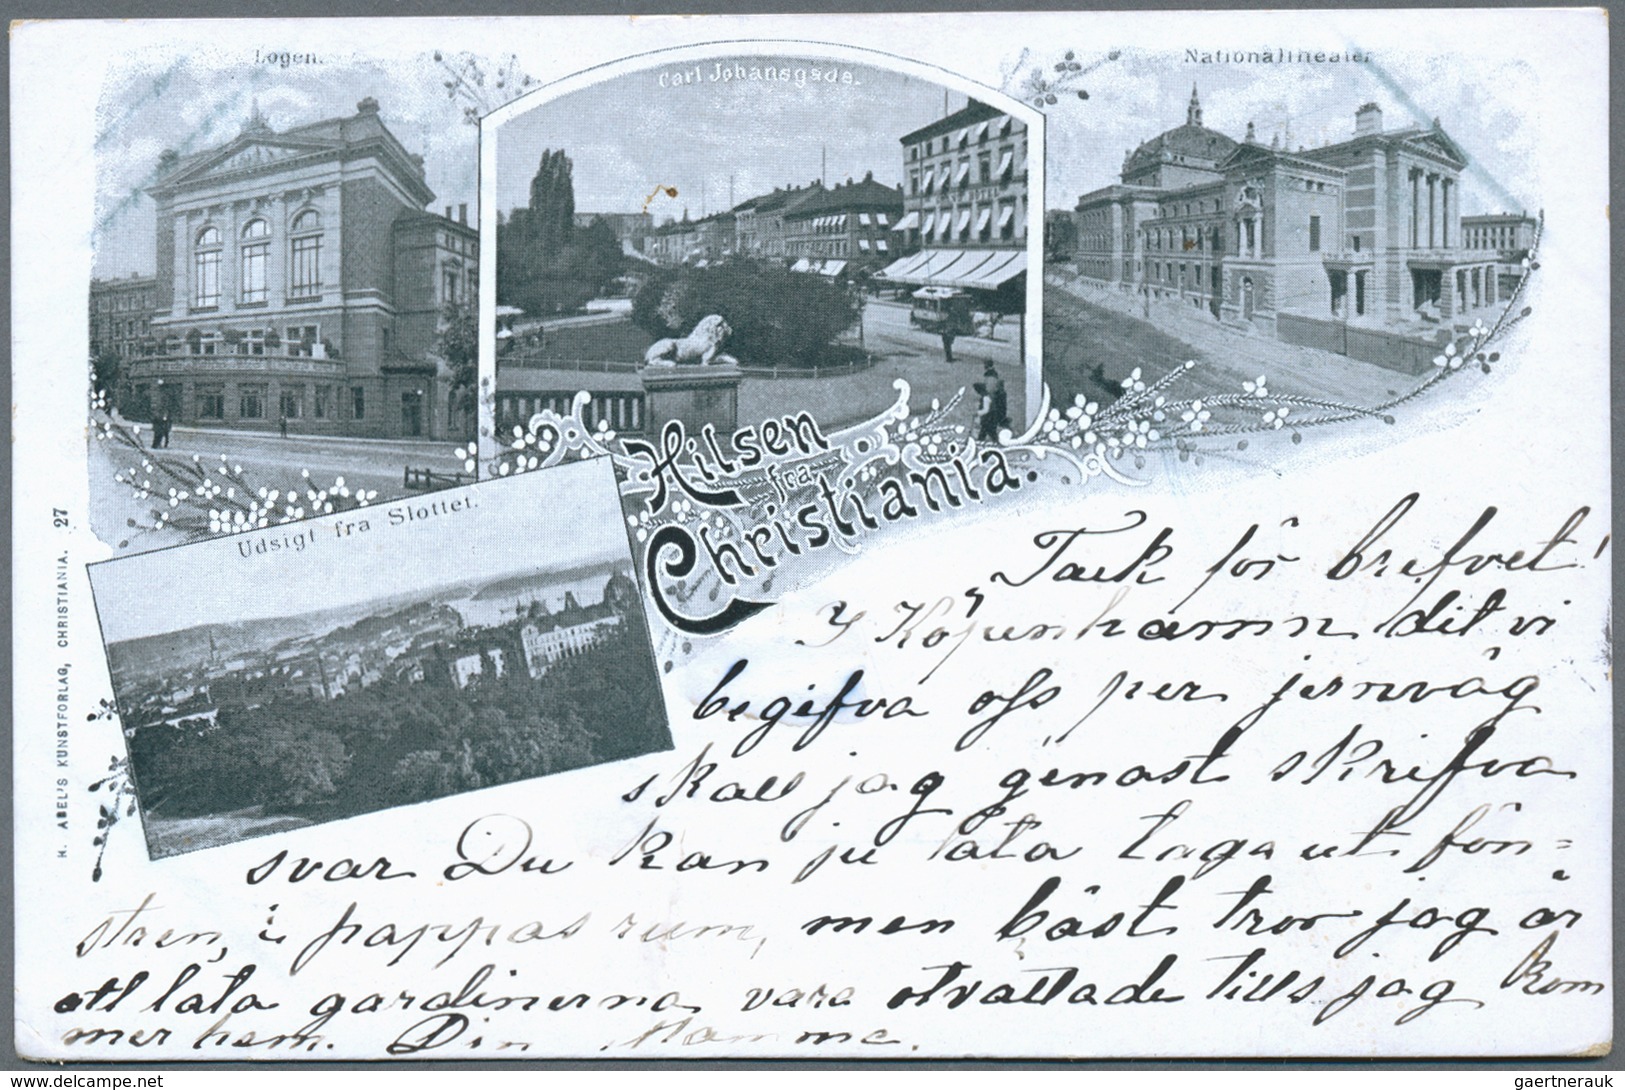 Logen.
Carl Johansgade.
Nationaltheater
Hilsen
fra
Christiania.
Udsigt fra Slottet.
H. ABEL'S KUNSTFORLAG, CHRISTIANIA. 27
Tack för brefvet!
I Köpenhamn dit vi
begifva oss per jernväg
skall jag genast skrifva
svar. Du kan ju låta taga ut fön=
stren, i pappas rum, men bäst tror jag är
att låta gardinerna vara otvättade tills jag kom
mer hem. Din Mamma.
gaertnerauk @ delcampe.net